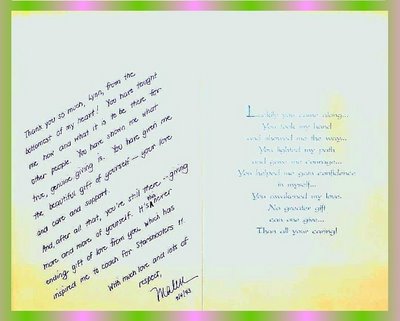 Thank you so much, Lynn, from the
bottomest of my heart! You have taught
me how and what it is to be there for
other people. You have shown me what
true, genuine giving is. You have given me
the beautiful gift of yourself -- your love
and care and support.
And, after all that, you're still there -- giving
more and more of yourself. It's the never
ending gift of love from you which has
inspired me to coach for Starshooters 11.
With much love and lots of
respect,
Luckily you came along...
You took my hand
and showed me the way...
You lighted my path
and gave me courage...
You helped me gain confidence
in myself...
You awakened my love.
No greater gift
can one give...
Than all your caring!